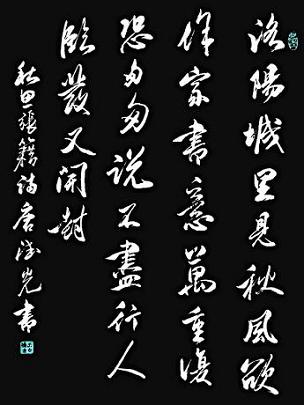 洛陽城里見秋風欲
作家書意萬重復
恐匆匆說不盡行人
臨發又開封
秋思張籍詩唐 書